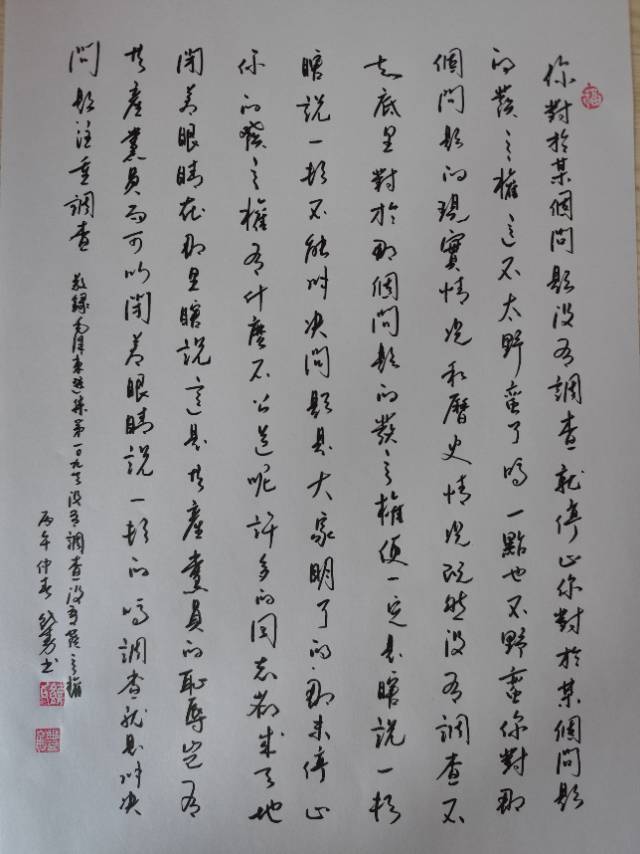 你對於某個問題沒有調查就停止你對於某個問題
的發言權這不太野蠻了嗎一點也不野蠻你對那
個問題的現實情況和歷史情況既然沒有調查不
知底里對於那個問題的發言權便一定是瞎說一頓
瞎說一頓不能解决問題是大家明了的那末停止
你的發言權有什麼不公道呢許多的同志都成天地
閉着眼睛在那里瞎說這是共產黨員的恥辱豈有
共產黨員而可以閉着眼睛說一頓的嗎調查就是解决
問題注重調查
敬錄毛澤東選集第一百九頁沒有調查沒有發言權
丙午仲春 書
福